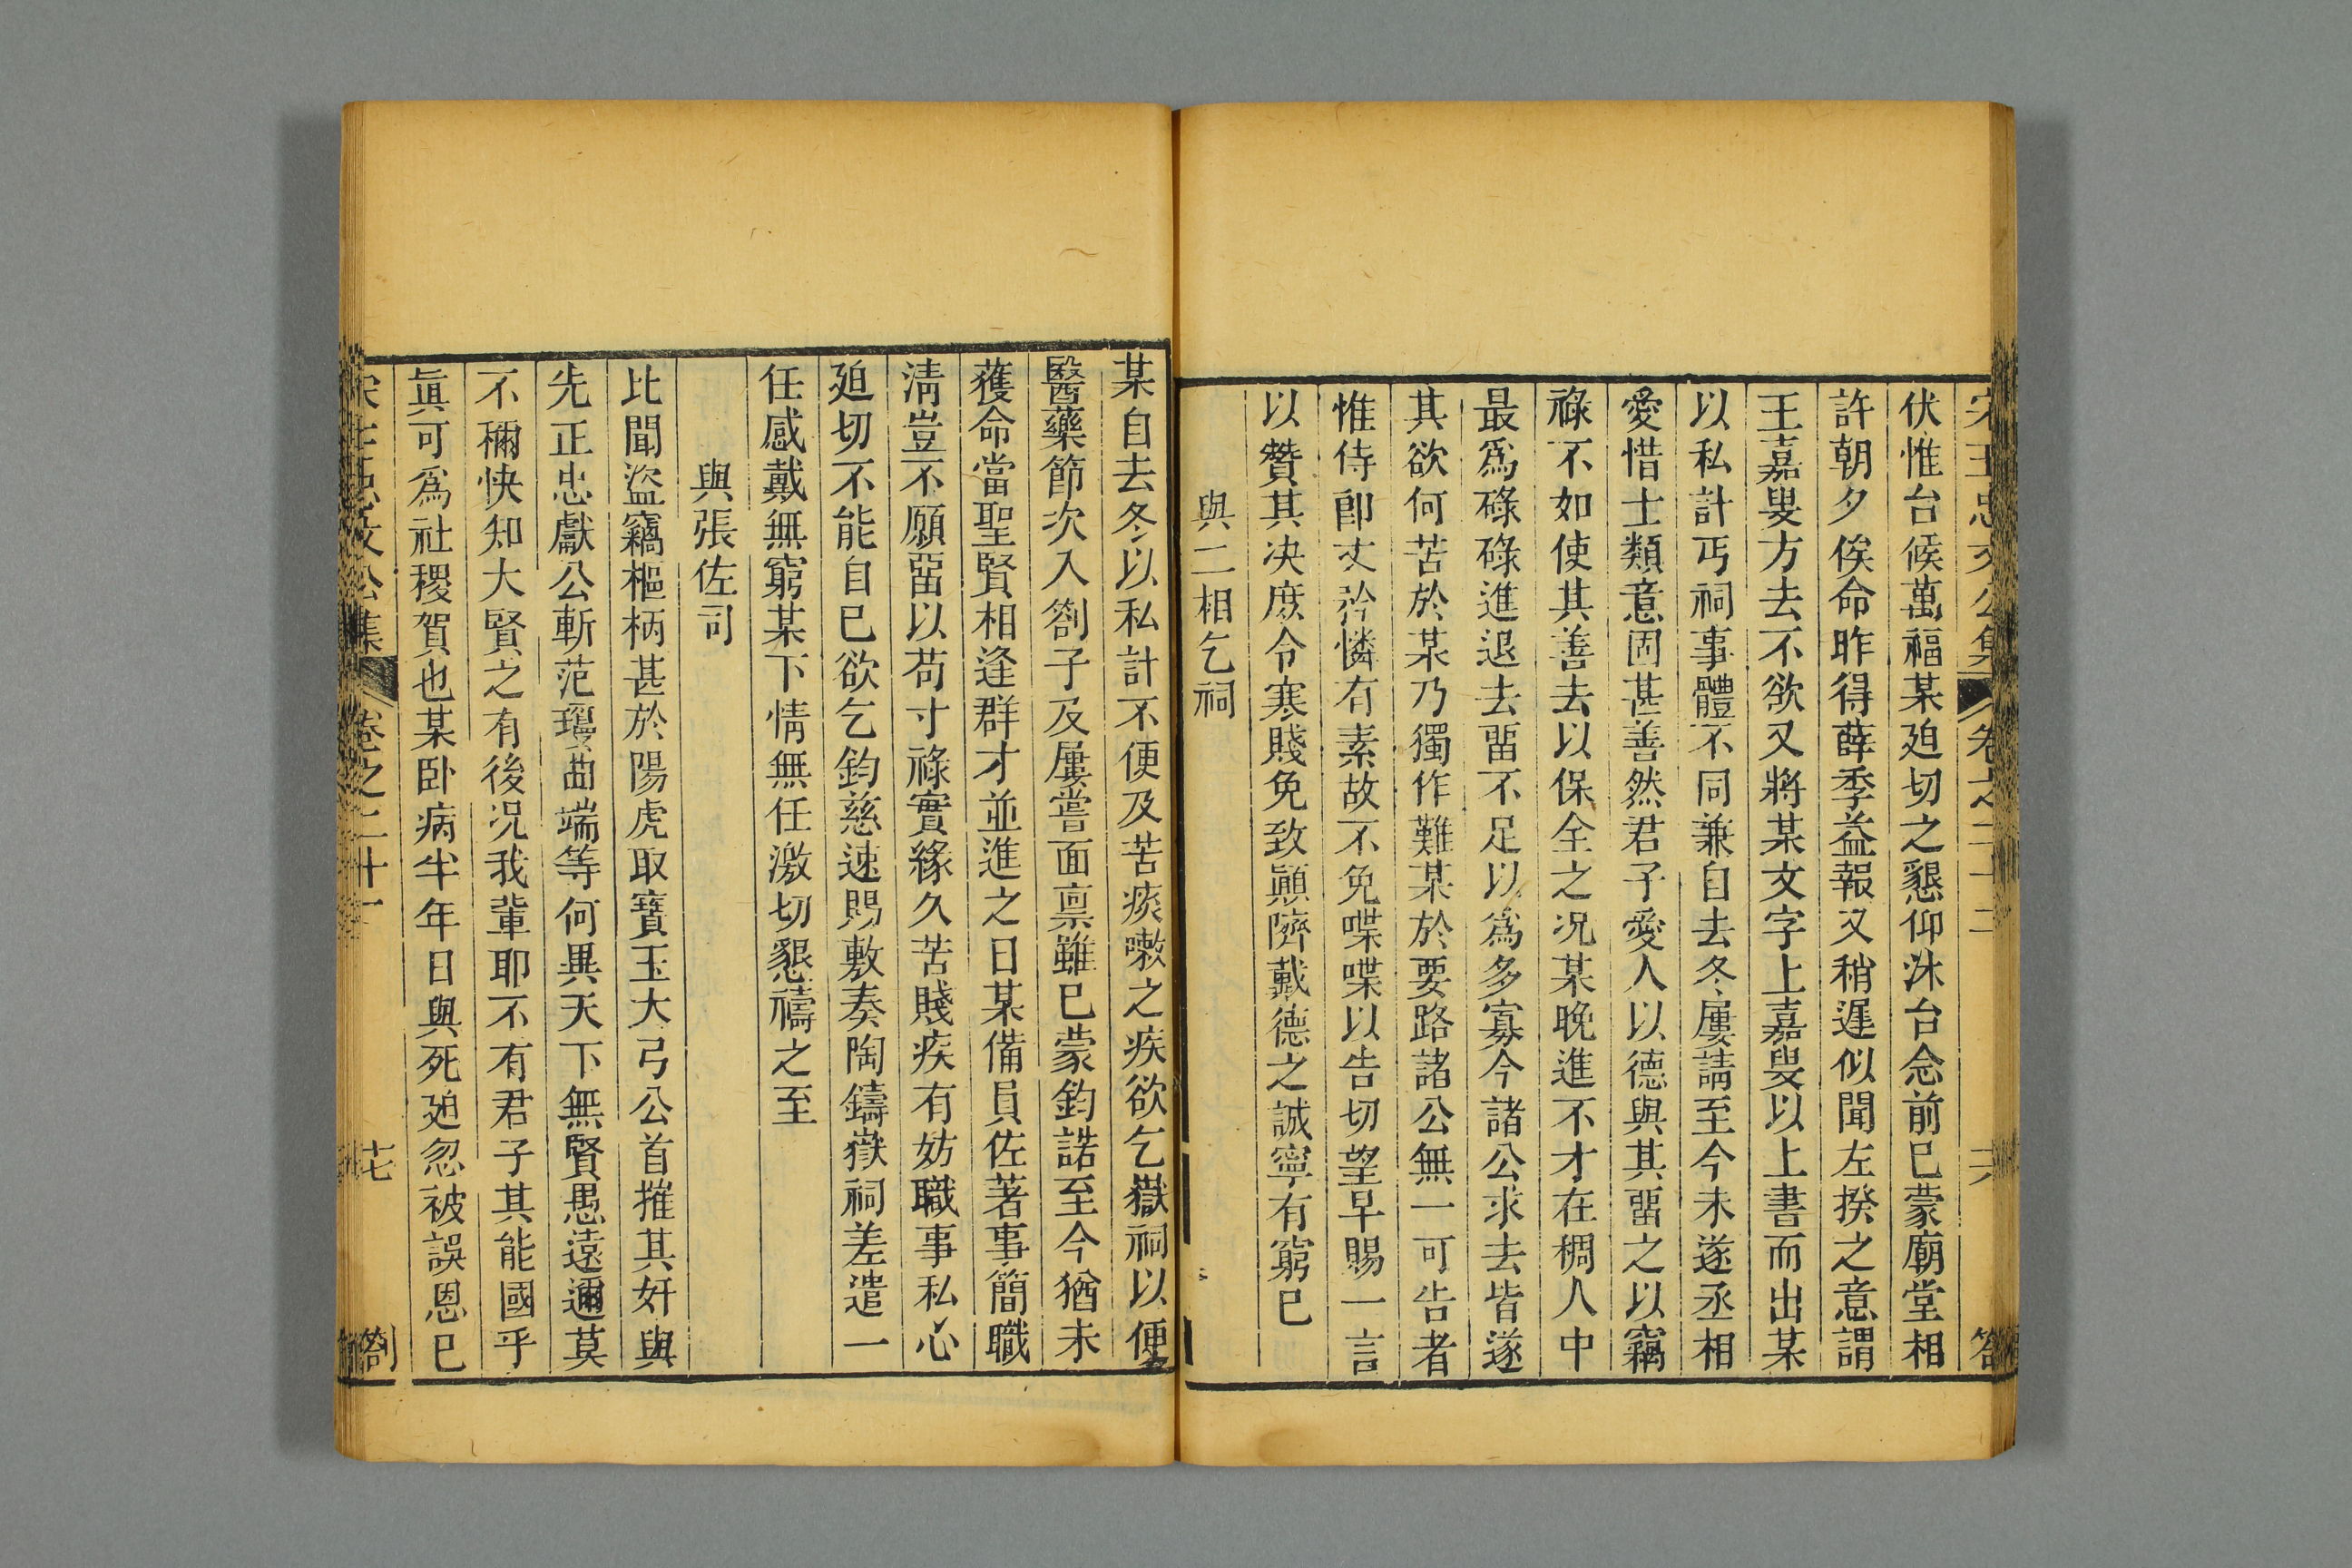 伏惟台候萬福某廹切之懇仰沐台念前已蒙廟堂相
許朝夕俟命昨得薛季益報又稍遲似聞左揆之意謂
王嘉叟方去不欲又將某文字上嘉叟以上書而出某
以私計丐祠事體不同兼自去冬屢請至今未遂丞相
愛惜士類意固甚善然君子愛人以德與其畱之以竊
祿不如使其善去以保全之况某晚進不才在稠人中
最爲碌碌進退去畱不足以爲多寡今諸公求去皆遂
其欲何苦於某乃獨作難某於要路諸公無一可告者
惟侍郎丈矜憐有素故不免喋喋以告切望早賜一言
以贊其决庶令寒賤免致顚隮戴德之誠寧有窮已
與二相乞祠
某自去冬以私計不便及苦痰嗽之疾欲乞嶽祠以便
醫藥節次入劄子及屢嘗面禀雖已蒙鈞諾至今猶未
獲命當聖賢相逢群才並進之日某備員佐著事簡職
清豈不願畱以苟寸祿實緣久苦賤疾有妨職事私心
廹切不能自已欲乞鈞慈速賜敷奏陶鑄嶽祠差遣一
任感戴無窮某下情無任激切懇禱之至
與張佐司
比聞盜竊樞柄甚於陽虎取寶玉大弓公首摧其奸與
先正忠獻公斬范瓊曲端等何異天下無賢愚遠邇莫
不稱快知大賢之有後况我輩耶不有君子其能國乎
眞可爲社稷賀也某卧病半年日與死廹忽被誤恩已
卷之二十一 十七 劄